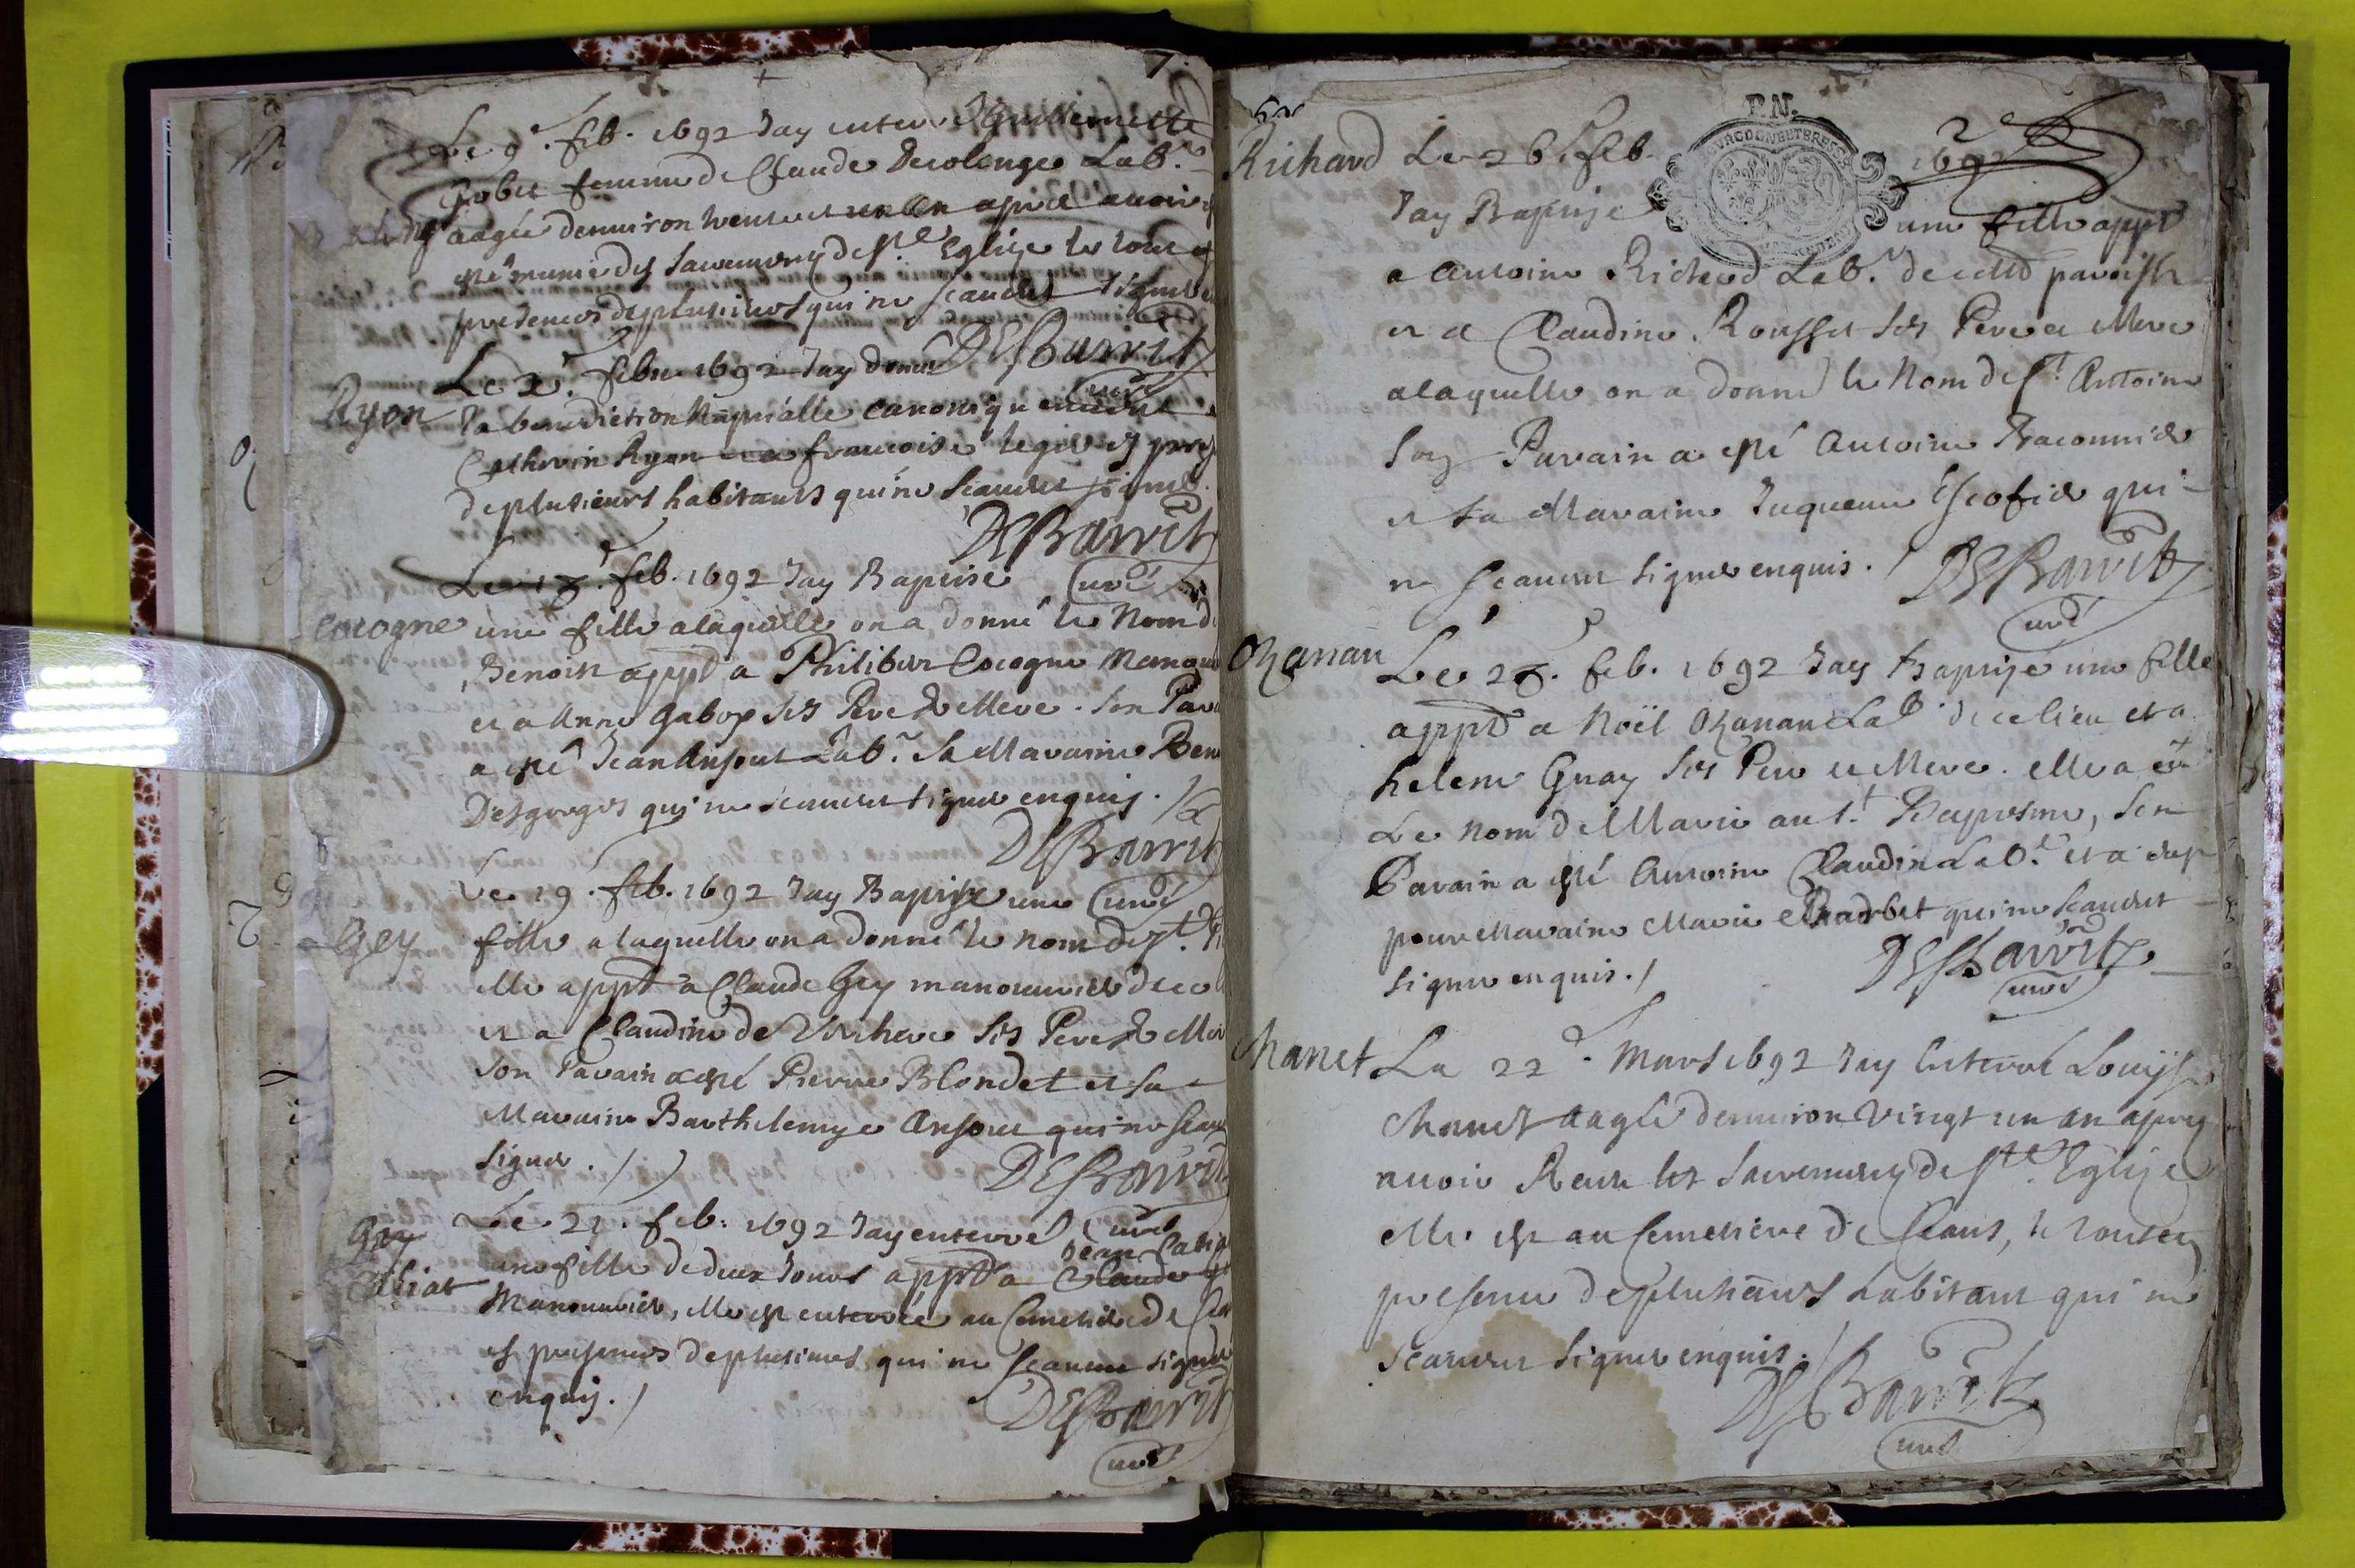 7.
Le 9e. feb. 1692 Jay enterré Guillemette
Gobet femme de Claude Decolonge Lab.r
aagée denuiron trente et un an apres auoir
esté munie des sacremens de Ste. Eglise le tout
presences de plusieurs qui ne scauent signer
DESBarrit
curé
Ryon
Le 2e. febu. 1692 Jay donné
la benediction nuptialle canoniquement
Ryon et a francoise legier es pres
de plusieurs habitants qui ne scauent signer.
DESBarrit
curé
Le 18e. feb. 1692 Jay Baptisé
cocogne
une fille a laquelle on a donné le nom d
Benoite appt a Philibert Cocogne Manou
et a Anne Gaboy ses Pere & Mere. Son Par
a esté Jean Ansout Lab.r Sa Maraine Ben
Desgorges qui ne scauent signer enquis.
DESBarrit
curé
Le 19. feb. 1692 Jay Baptisé une
Gey
fille a laquelle on a donné le nom de
elle appt a Claude Gey manouurier de ce
et a Claudine de Verchere ses Pere & Mer
Son Parain a esté Pierre Blondet et sa
Maraine Barthelemye Ansout qui ne scau
signer.
DESBarrit
curé
Le 21. feb. 1692 Jay enterré
Gey
Jean Catia
une fille de deux Jours appt a Claude
Catiat
Manouurier, elle est enterrée au Cemetiere de Cea
es presences de plusieurs qui ne scauent signer
enquis.
DESBarrit
curé
P.N.
Richard
Le 26e feb. 1692
Jay Baptisé une fille appt
a Antoine Richard Lab.r de cette paroisse
et a Claudine Rousset ses Pere et Mere
a laquelle on a donné le Nom de St. Antoine
Son Parain a esté Antoine Braconnier
et sa Maraine Juquenne Escofier qui
ne scauent signer enquis.
DESBarrit
curé
Ozanan
Le 27. feb. 1692 Jay baptisé une fille
appt a Noël Ozanan Lab de ce lieu et a
helene Guay ses Pere et Mere. elle a eu
Le nom de Marie au St. Baptesme, Son
Parain a esté Antoine Claudin Lab.r et a
pour Maraine Marie qui ne scauent
signer enquis.
DESBarrit
curé
Chanet
Le 22e. Mars 1692 Jay Enterré Louyse
Chanet aagée denuiron vingt un an apres
auoir Receu les Sacremens de Ste. Eglise
elle est au Cemetiere de Ceans, le tout en
presence de plusieurs habitans qui ne
scauent signer enquis.
DESBarrit
curé